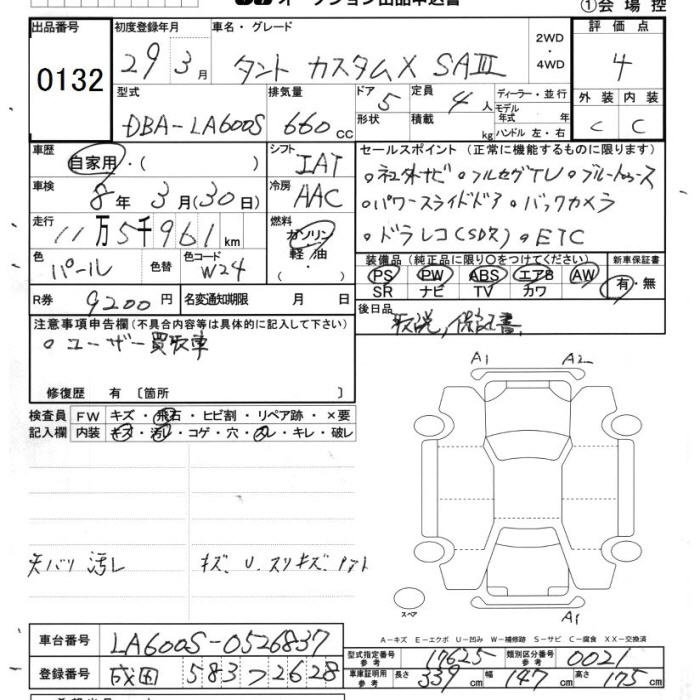 オークション出品申込書
①会場控
出品番号 0132
初度登録年月 29年 3月
車名・グレード タント カスタムX SAⅢ
2WD・4WD
評価点 4
外装 C 内装 C
型式 DBA-LA600S
排気量 660cc
ドア 5 形状
定員 4人 積載 kg
ディーラー・並行
モデル年式 年
ハンドル 左・右
車歴 自家用・( )
シフト IAT
車検 8年 3月(30日)
冷房 AAC
走行 11万5千961km
燃料 ガソリン・軽油・
色 パール 色替
色コード W24
R券 9200円
名変通知期限 月 日
セールスポイント (正常に機能するものに限ります)
・社外ナビ ・フルセグTV ・ブルートゥース
・パワースライドドア ・バックカメラ
・ドラレコ(SD欠) ・ETC
装備品(純正品に限り○をつけてください)
PS PW ABS エアB AW
SR ナビ TV カワ
新車保証書 有・無
後日品 取説, 保証書
注意事項申告欄(不具合内容等は具体的に記入して下さい)
・ユーザー買取車
修復歴 有 〔箇所 〕
検査員記入欄
FW キズ・飛石・ヒビ割・リペア跡・×要
内装 キズ・汚レ・コゲ・穴・スレ・キレ・破レ
天バリ 汚レ
キズ. U. スリキズ.
A1 A2
A1
スペア
A-キズ E-エクボ U-凹み W-補修跡 S-サビ C-腐食 XX-交換済
車台番号 LA600S-0526837
登録番号 成田 583つ2628
型式指定番号 参考 17625
類別区分番号 参考 0021
車庫証明用 参考 長さ 339cm 幅 147cm 高さ 175cm